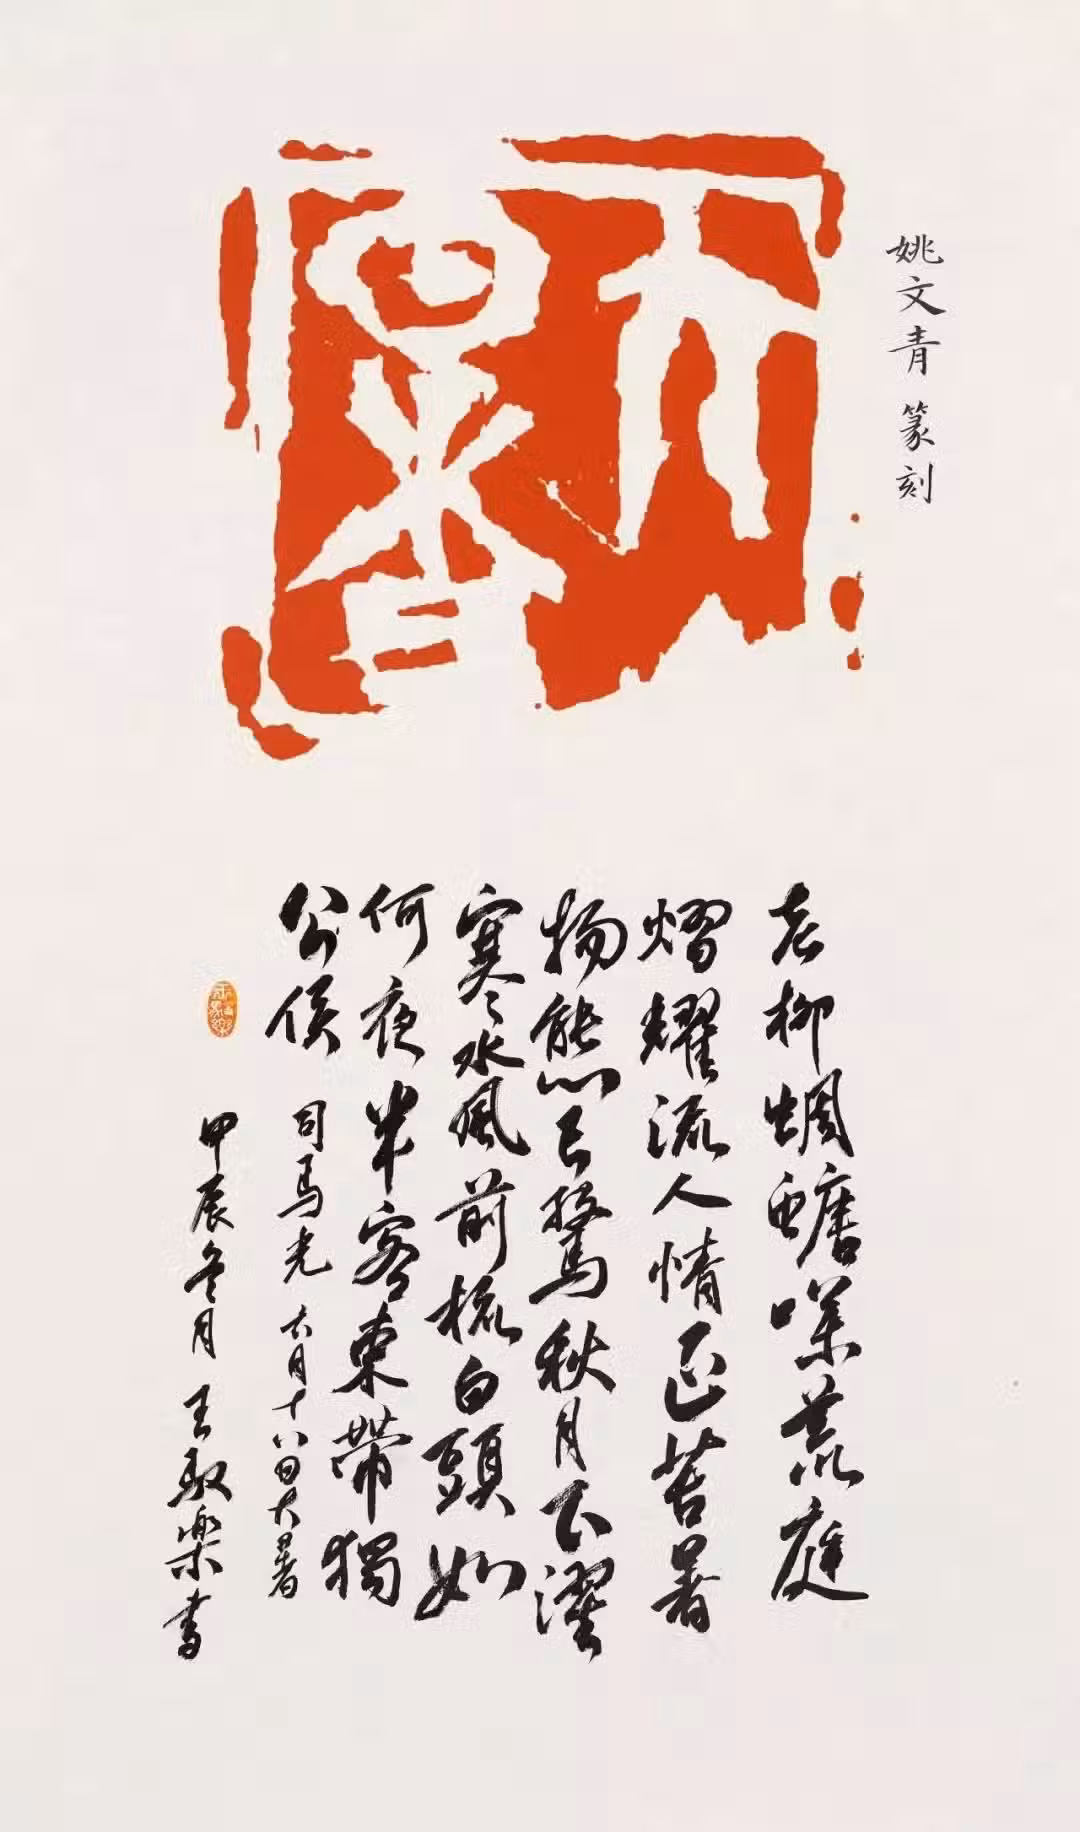 大暑
姚文青 篆刻
老柳蜩螗噪荒庭
熠耀流人情正苦暑
物態已驚秋月下濯
寒水風前梳白頭如
何夜半客束帶謁
公侯 司马光 六月十八日大暑
甲辰冬月 王取樂書